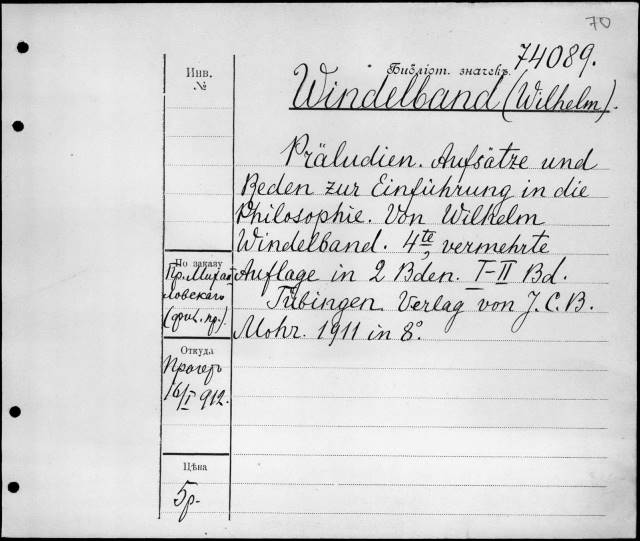 70
Инв.
№
Библіот. значекъ.
74089.
Windelband (Wilhelm).
Präludien. Aufsätze und
Reden zur Einführung in die
Philosophie. Von Wilhelm
Windelband. 4te, vermehrte
Auflage in 2 Bden. I-II Bd.
Tübingen. Verlag von J. C. B.
Mohr. 1911 in 8º.
По заказу
Пр. Михай
ловскаго
Откуда
16/I 912.
Цѣна
5 р.